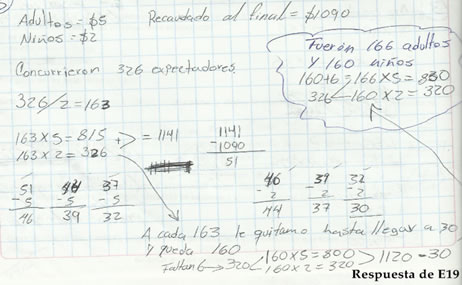 Adultos = $5
Niños = $2
Recaudado al final = $1090
Concurrieron 326 expectadores.
326/2 = 163
163 x 5 = 815
163 x 2 = 326
> = 1141
1141
-1090
51
Fuerón 166 adultos
Y 160 niños
160+6 = 166 x 5 = 830
326 160 x 2 = 320
51
- 5
46
44
- 5
39
37
- 5
32
46
- 2
44
39
- 2
37
32
- 2
30
A cada 163 le quitamo hasta llegar a 30
Y queda 160
Faltan 6 → 320 < 160 x 5 = 800 > 1120 - 30
160 x 2 = 320
Respuesta de E19